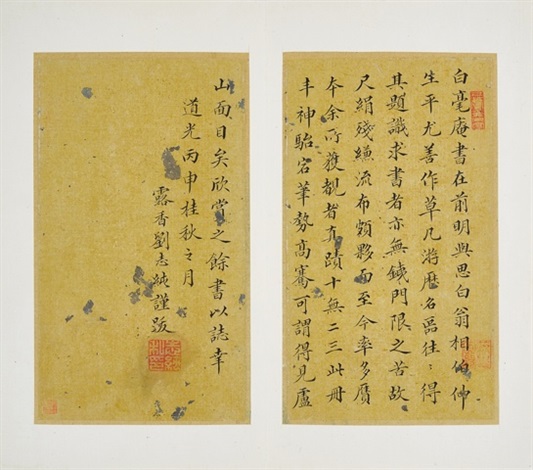 白毫庵書在前明與思白翁相伯仲
生平尤善作草凡游歷名區往〻得
其題識求書者亦無鐵門限之苦故
尺絹殘縑流布頗夥而至今率多贋
本余所獲覩者真蹟十無二三此冊
丰神駘宕筆勢高騫可謂得見廬
山面目矣欣賞之餘書以誌幸
道光丙申桂秋之月
露香劉志純謹跋